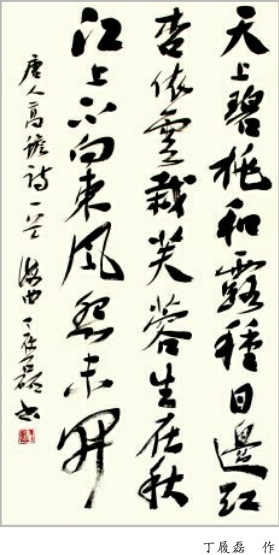 天上碧桃和露種日邊紅
杏依雲栽芙蓉生在秋
江上不向東風怨未開
唐人高蟾詩一首 海曲丁履磊書
丁履磊 作